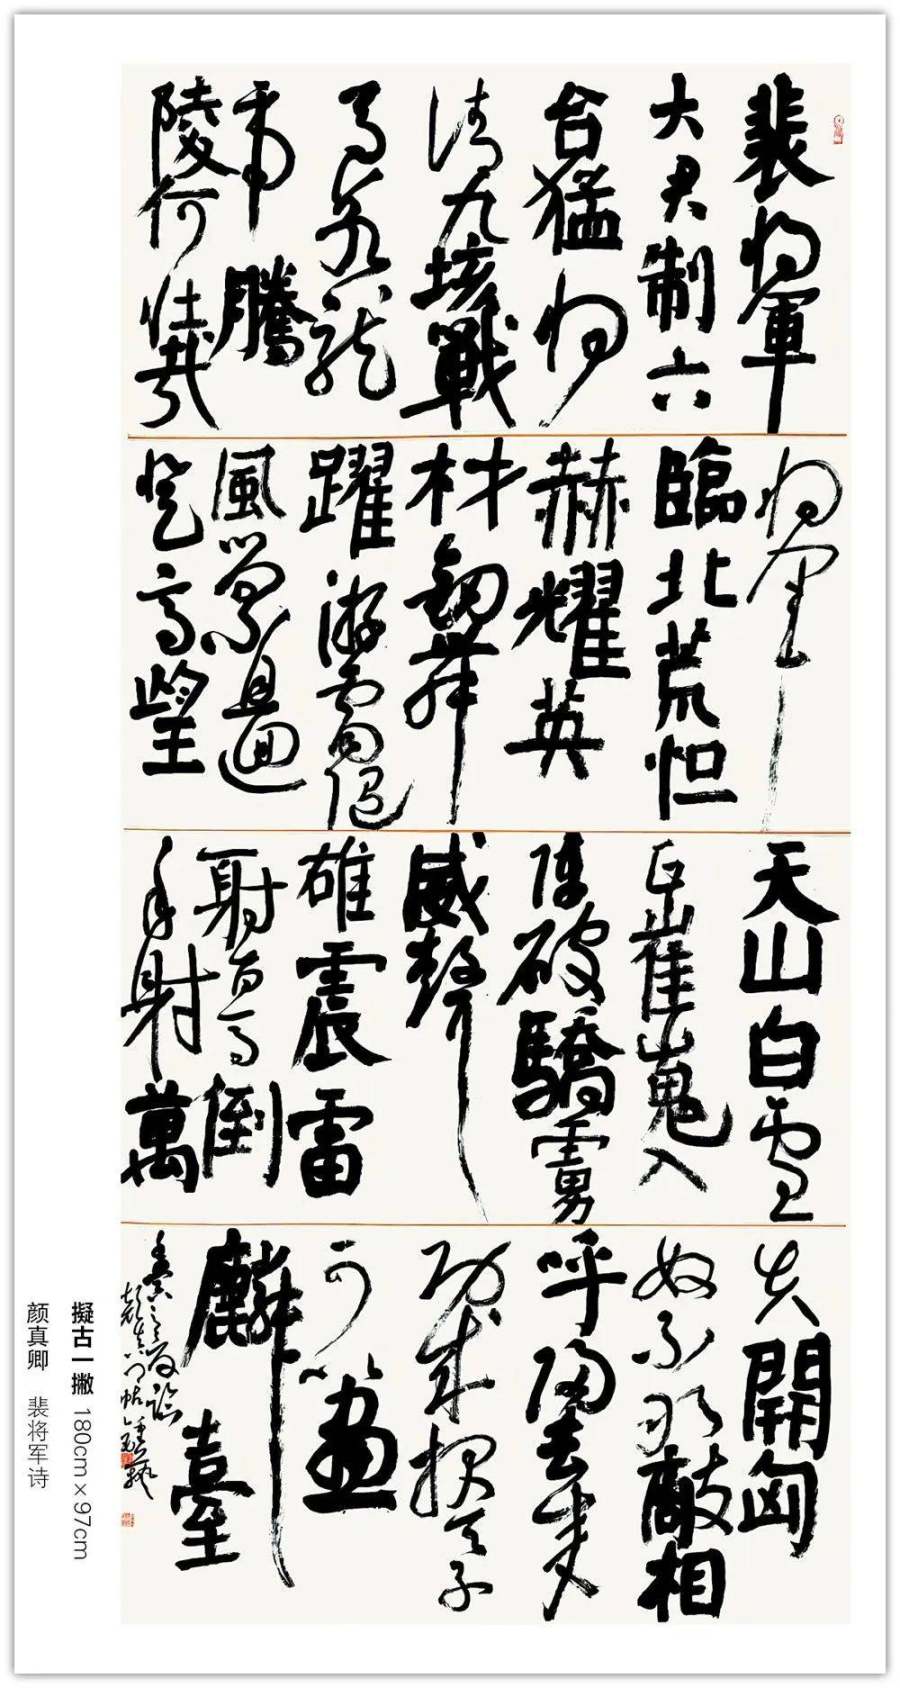 裴将軍
大君制六
合猛将
清九垓戰
馬若龍
虎騰
陵何壮哉
将軍
臨北荒怛
赫耀英
材劒舞
躍游雷随
風縈且迴
登高望
天山白雲
正崔嵬入
陣破驕虜
威聲
雄震雷
一射百馬倒
再射萬
夫開匈
奴不敢敵相
呼歸去来
功成報天子
可以畫
麟臺
擬古一撇 180cm×97cm
颜真卿 裴将军诗